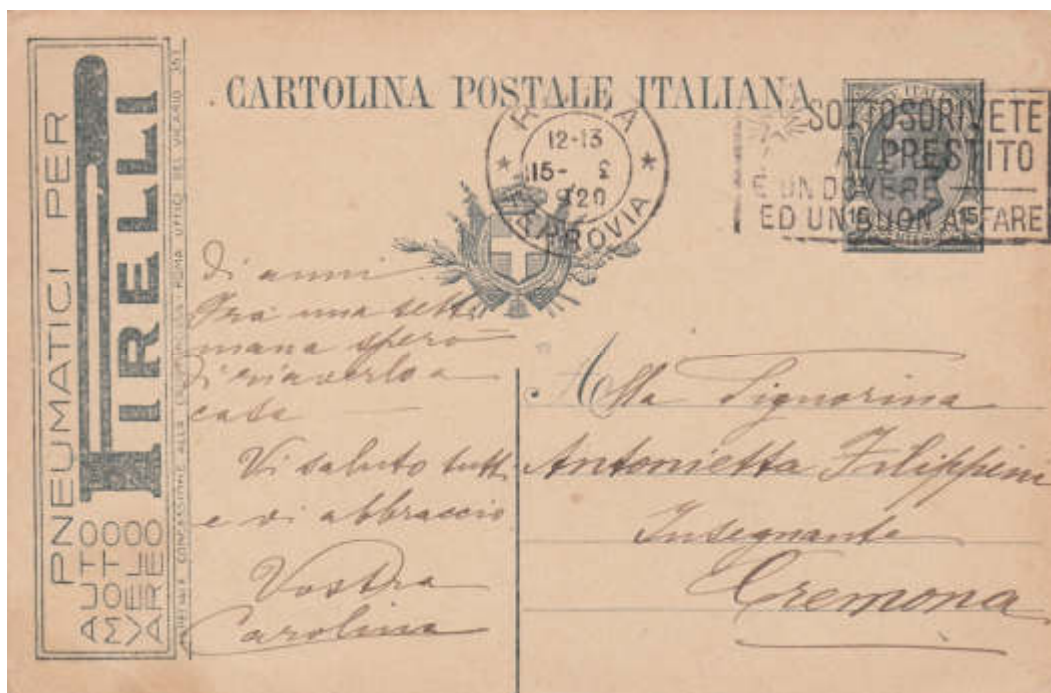 CARTOLINA POSTALE ITALIANA
PNEUMATICI PER
PIRELLI
AUTO
MOTO
VELO
AREO
ROMA
12-13
15-
920
FERROVIA
SOTTOSCRIVETE
AL PRESTITO
È UN DOVERE
ED UN BUON AFFARE
15 15
di anni.
Fra una setti
mana spero
di riaverlo a
casa
Vi saluto tutti
e vi abbraccio
Vostra
Carolina
Alla Signorina
Antonietta Filippini
Insegnante
Cremona